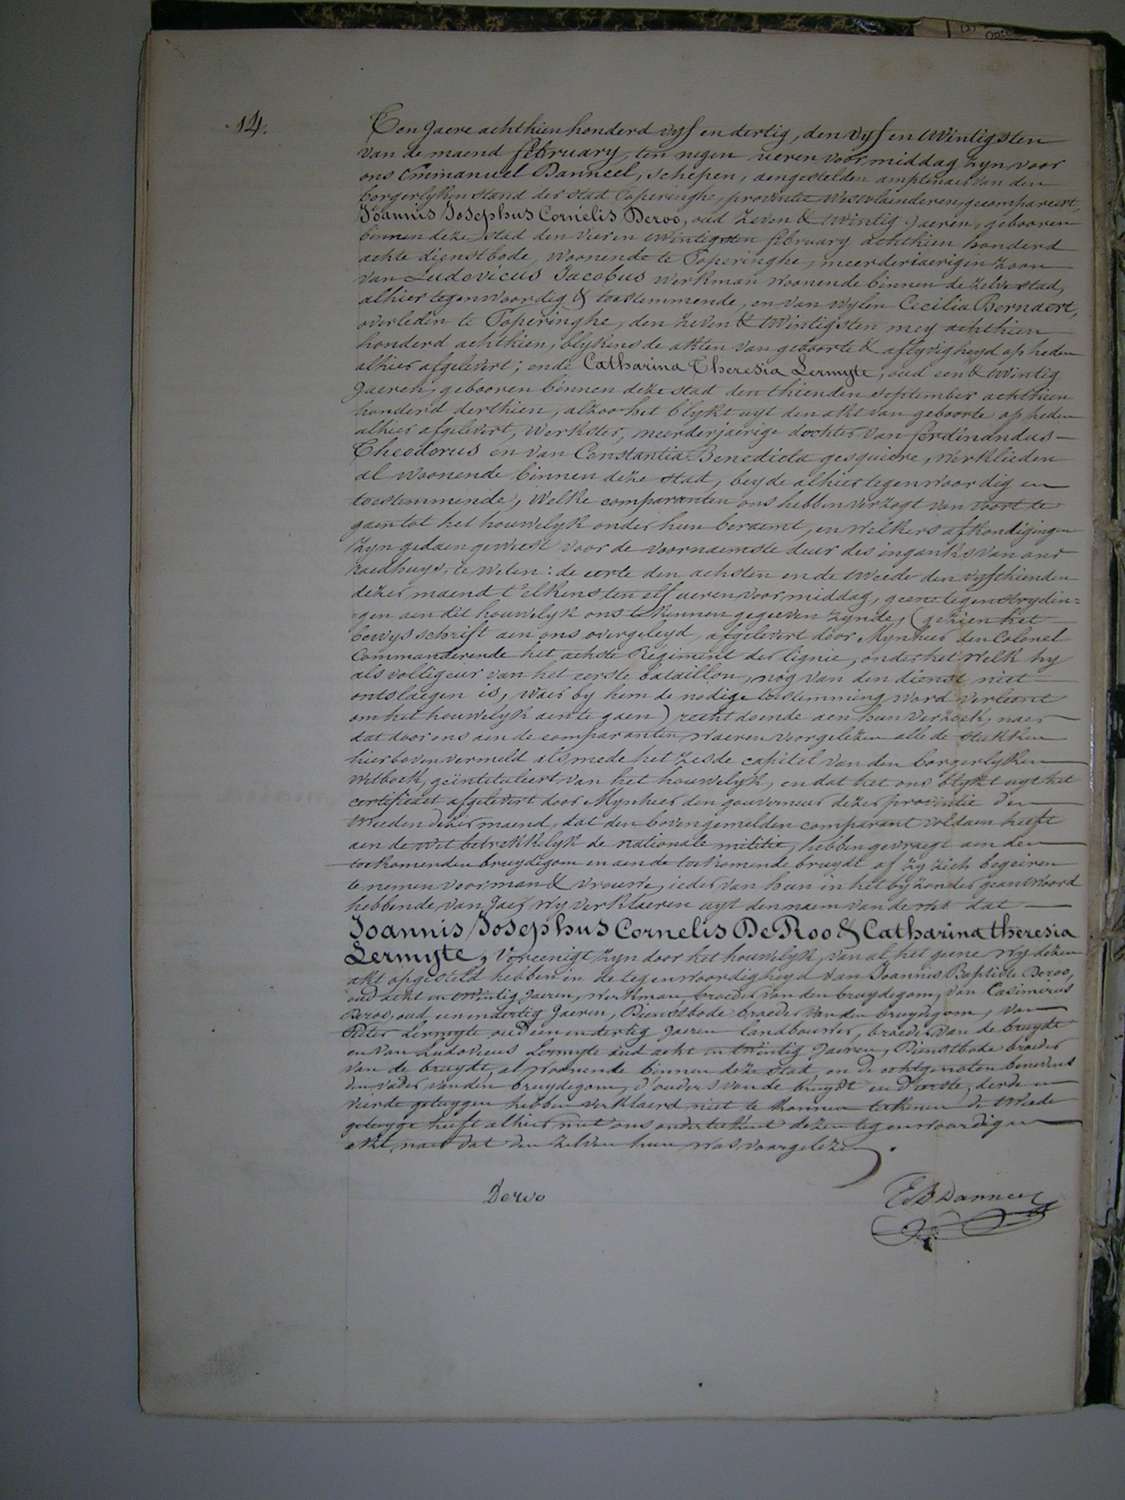 14.
Ten Jaere achthien honderd vyf en dertig, den vyf en twintigsten
van de maend february, ten negen ueren voormiddag zyn voor
ons Emmanuel Banneel, schepen, aengestelden amptenaer van den
borgerlyken stand der stad Poperinghe, provintie Westvlaenderen, gecompareert,
Joannis Josephus Cornelis Deroo, oud zeven & twintig Jaeren, gebooren
binnen deze stad den vier en twintigsten february achthien honderd
achte dienstbode, woonende te Poperinghe, meerderjaerigen zoon
van Ludovicus Jacobus werkman woonende binnen de zelve stad,
alhier tegenwoordig & toestemmende, en van wylen Cecilia Bernaert,
overleden te Poperinghe, den zeven & twintigsten mey achthien
honderd achthien, blykens de akten van geboorte & aflyvigheyd op heden
alhier afgelevert; ende Catharina Theresia Lermyte, oud een & twintig
Jaeren, gebooren binnen deze stad den thienden september achthien
honderd derthien, alzoo het blykt uyt den akt van geboorte op heden
alhier afgelevert, werkster, meerderjaerige dochter van ferdinandus
Theodorus en van Constantia Benedicta gesquiere, werklieden
al woonende binnen deze stad, beyde alhier tegenwoordig en
toestemmende, welke comparanten ons hebben verzogt van voort te
gaen tot het houwelyk onder hun beraemt, en welkers afkondigingen
zyn gedaen geweest voor de voornaemste deur des inganks van ons
raedhuys, te weten: de eerste den achsten en de tweede den vyfthienden
dezer maend t'elkens ten elf ueren voormiddag, geene tegenstrydin=
gen aen dit houwelyk ons te kennen gegeeven zynde, (gezien het
bewys schrift aen ons overgeleyd, afgelevert door Mynheer den Colonel
Commanderende het achste Regiment der lignie, onder het welk hy
als voltigeur van het eerste bataillon, nog van den dienst niet
ontslaegen is, waer by hem de nodige toestemming word verleent
om het houwelyk aen te gaen) recht doende aen hun verzoek, naer
dat door ons aen de comparanten waeren voorgelezen alle de stukken
hierboven vermeld alsmede het zesde capitel van den borgerlyken
wetboek, geintituleert van het houwelyk, en dat het ons blykt uyt het
certificaet afgelevert door Mynheer den gouverneur dezer provintie den
tweeden dezer maend, dat den bovengemelden comparant voldaen heeft
aen de wet betrekkelyk de nationale militie, hebben gevraegt aen den
toekomenden bruydegom en aen de toekomende bruydt of zy zich begeiren
te nemen voor man & vrouwe, ieder van hun in het byzonder geantwoord
hebbende van Jaer, wy verklaeren uyt den naem van de wet dat
Joannis Josephus Cornelis De Roo & Catharina theresia
Lermyte, Vereenigt zyn door het houwelyk, van al het geene wy dezen
akt opgesteld hebben in de tegenwoordigheyd van Joannes Baptiste Deroo,
oud acht en twintig Jaeren, werkman broeder van den bruydegom, van Casimirus
Deroo, oud een en dertig Jaeren, Dienstbode broeder van den bruydegom, van
Pieter Lermyte oud een en dertig Jaeren landbouwer, broeder van de bruydt
en van Ludovicus Lermyte oud acht en twintig Jaeren, Dienstbode broeder
van de bruydt, al woonende binnen deze stad, en de echtgenoten benevens
den vader van den bruydegom, d'ouders van de bruydt en d'eerste, derde en
vierde getuygen hebben verklaerd niet te konnen tekenen de tweede
getuyge heeft alhier met ons onderteekent dezen tegenwoordigen
akt, naer dat den zelven hun was voorgelezen.
Deroo
E B Banneel